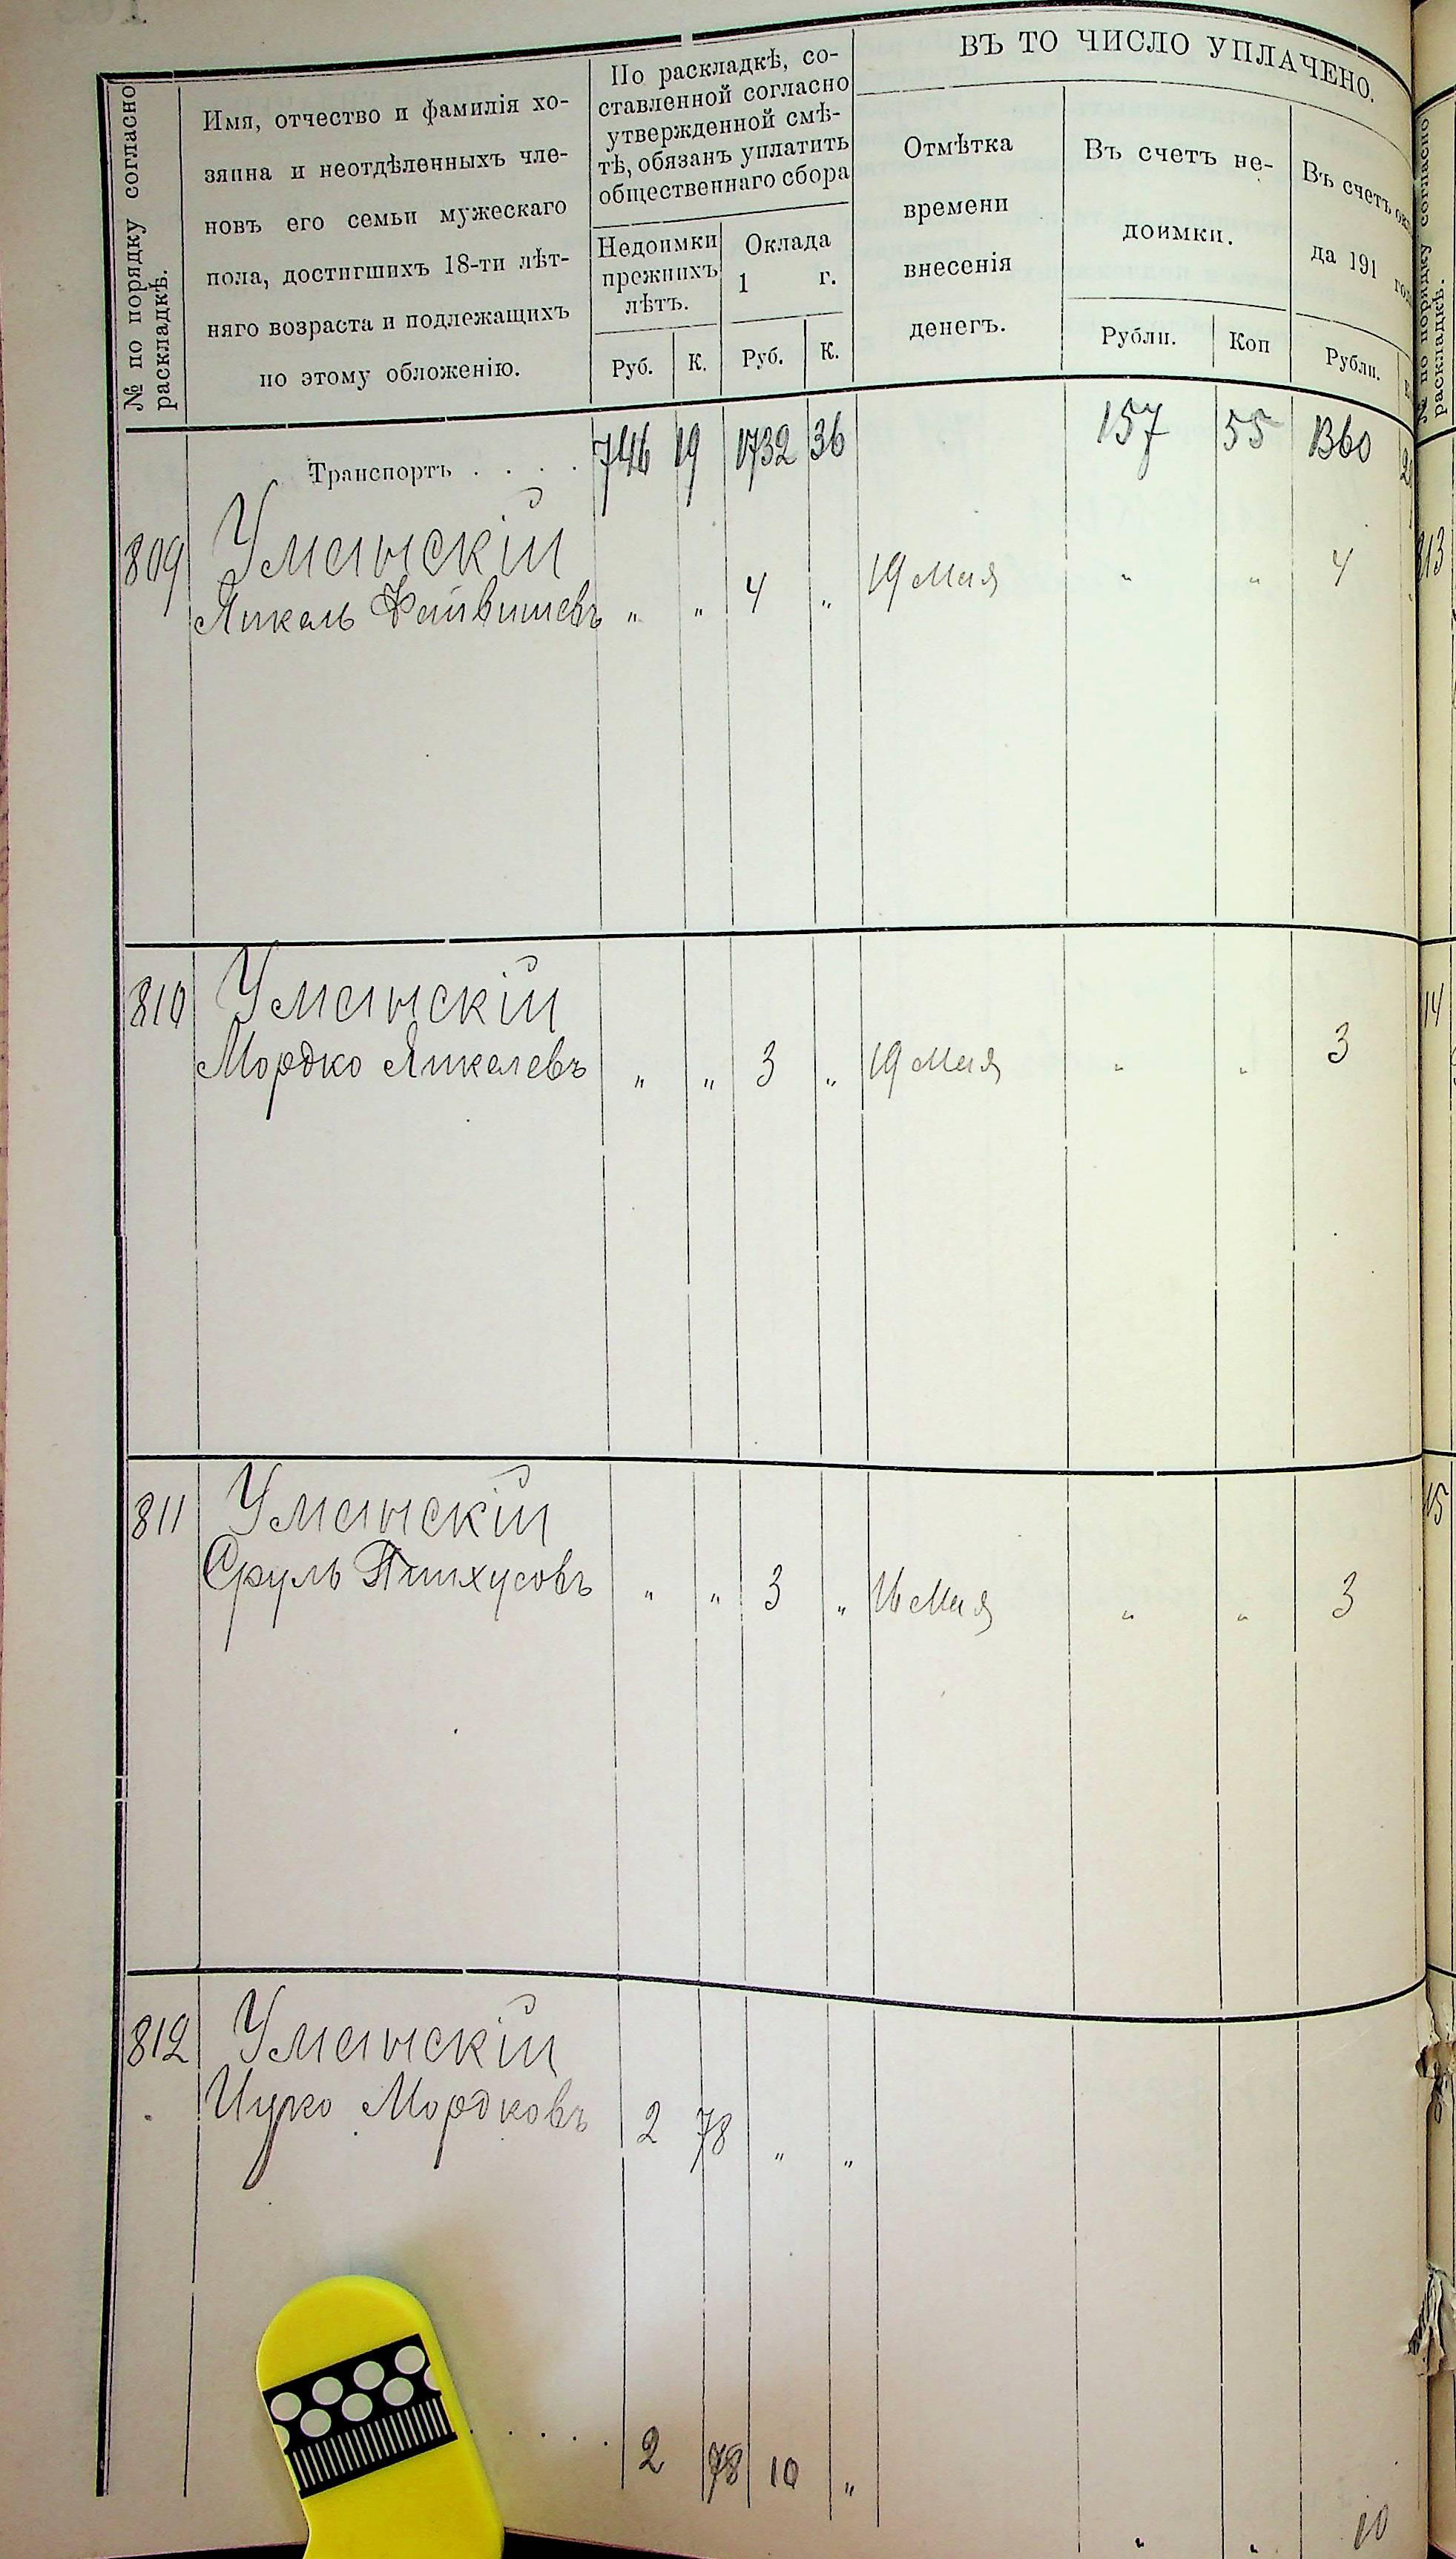 № по порядку согласно
раскладкѣ.
Имя, отчество и фамилія хо-
зяина и неотдѣленныхъ чле-
новъ его семьи мужескаго
пола, достигшихъ 18-ти лѣт-
няго возраста и подлежащихъ
по этому обложенію.
По раскладкѣ, со-
ставленной согласно
утвержденной смѣ-
тѣ, обязанъ уплатить
общественнаго сбора
Недоимки
прежнихъ
лѣтъ.
Оклада
1 г.
Руб. К. Руб. К.
ВЪ ТО ЧИСЛО УПЛАЧЕНО.
Отмѣтка
времени
внесенія
денегъ.
Въ счетъ не-
доимки.
Рубли. Коп
Въ счетъ
да 191
Рубли.
Транспортъ . . . . 746 19 1732 36 157 55 1360
809 Уманскій
Янкель Файвишевъ „ „ 4 „ 19 Мая „ „ 4
810 Уманскій
Мордко Янкелевъ „ „ 3 „ 19 Мая „ „ 3
811 Уманскій
Сруль Пинхусовъ „ „ 3 „ 16 Мая „ „ 3
812 Уманскій
Ицко Мордковъ 2 78 „ „
2 78 10 „ „ „ 10
№ по порядку согласно
раскладкѣ.
813
14
15